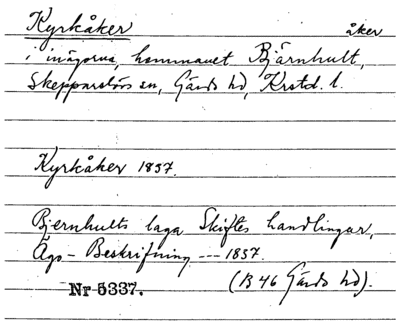 Kyrkåker åker
i inägorna, hemmanet Bjärnhult,
Skepparslövs sn, Gärds hd, Krstd. l.
Kyrkåker 1837.
Bjernhults laga Skiftes handlingar,
Ägo-Beskrifning --- 1837.
Nr 5337. (B 46 Gärds hd).